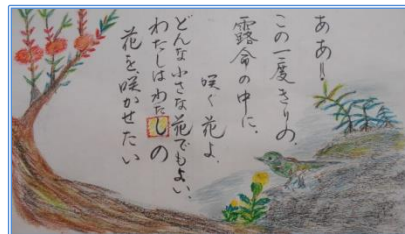 ああ!
この一度きりの
露命の中に、
咲く花よ、
どんな小さな花でもよい、
わたしはわたしの
花を、咲かせたい